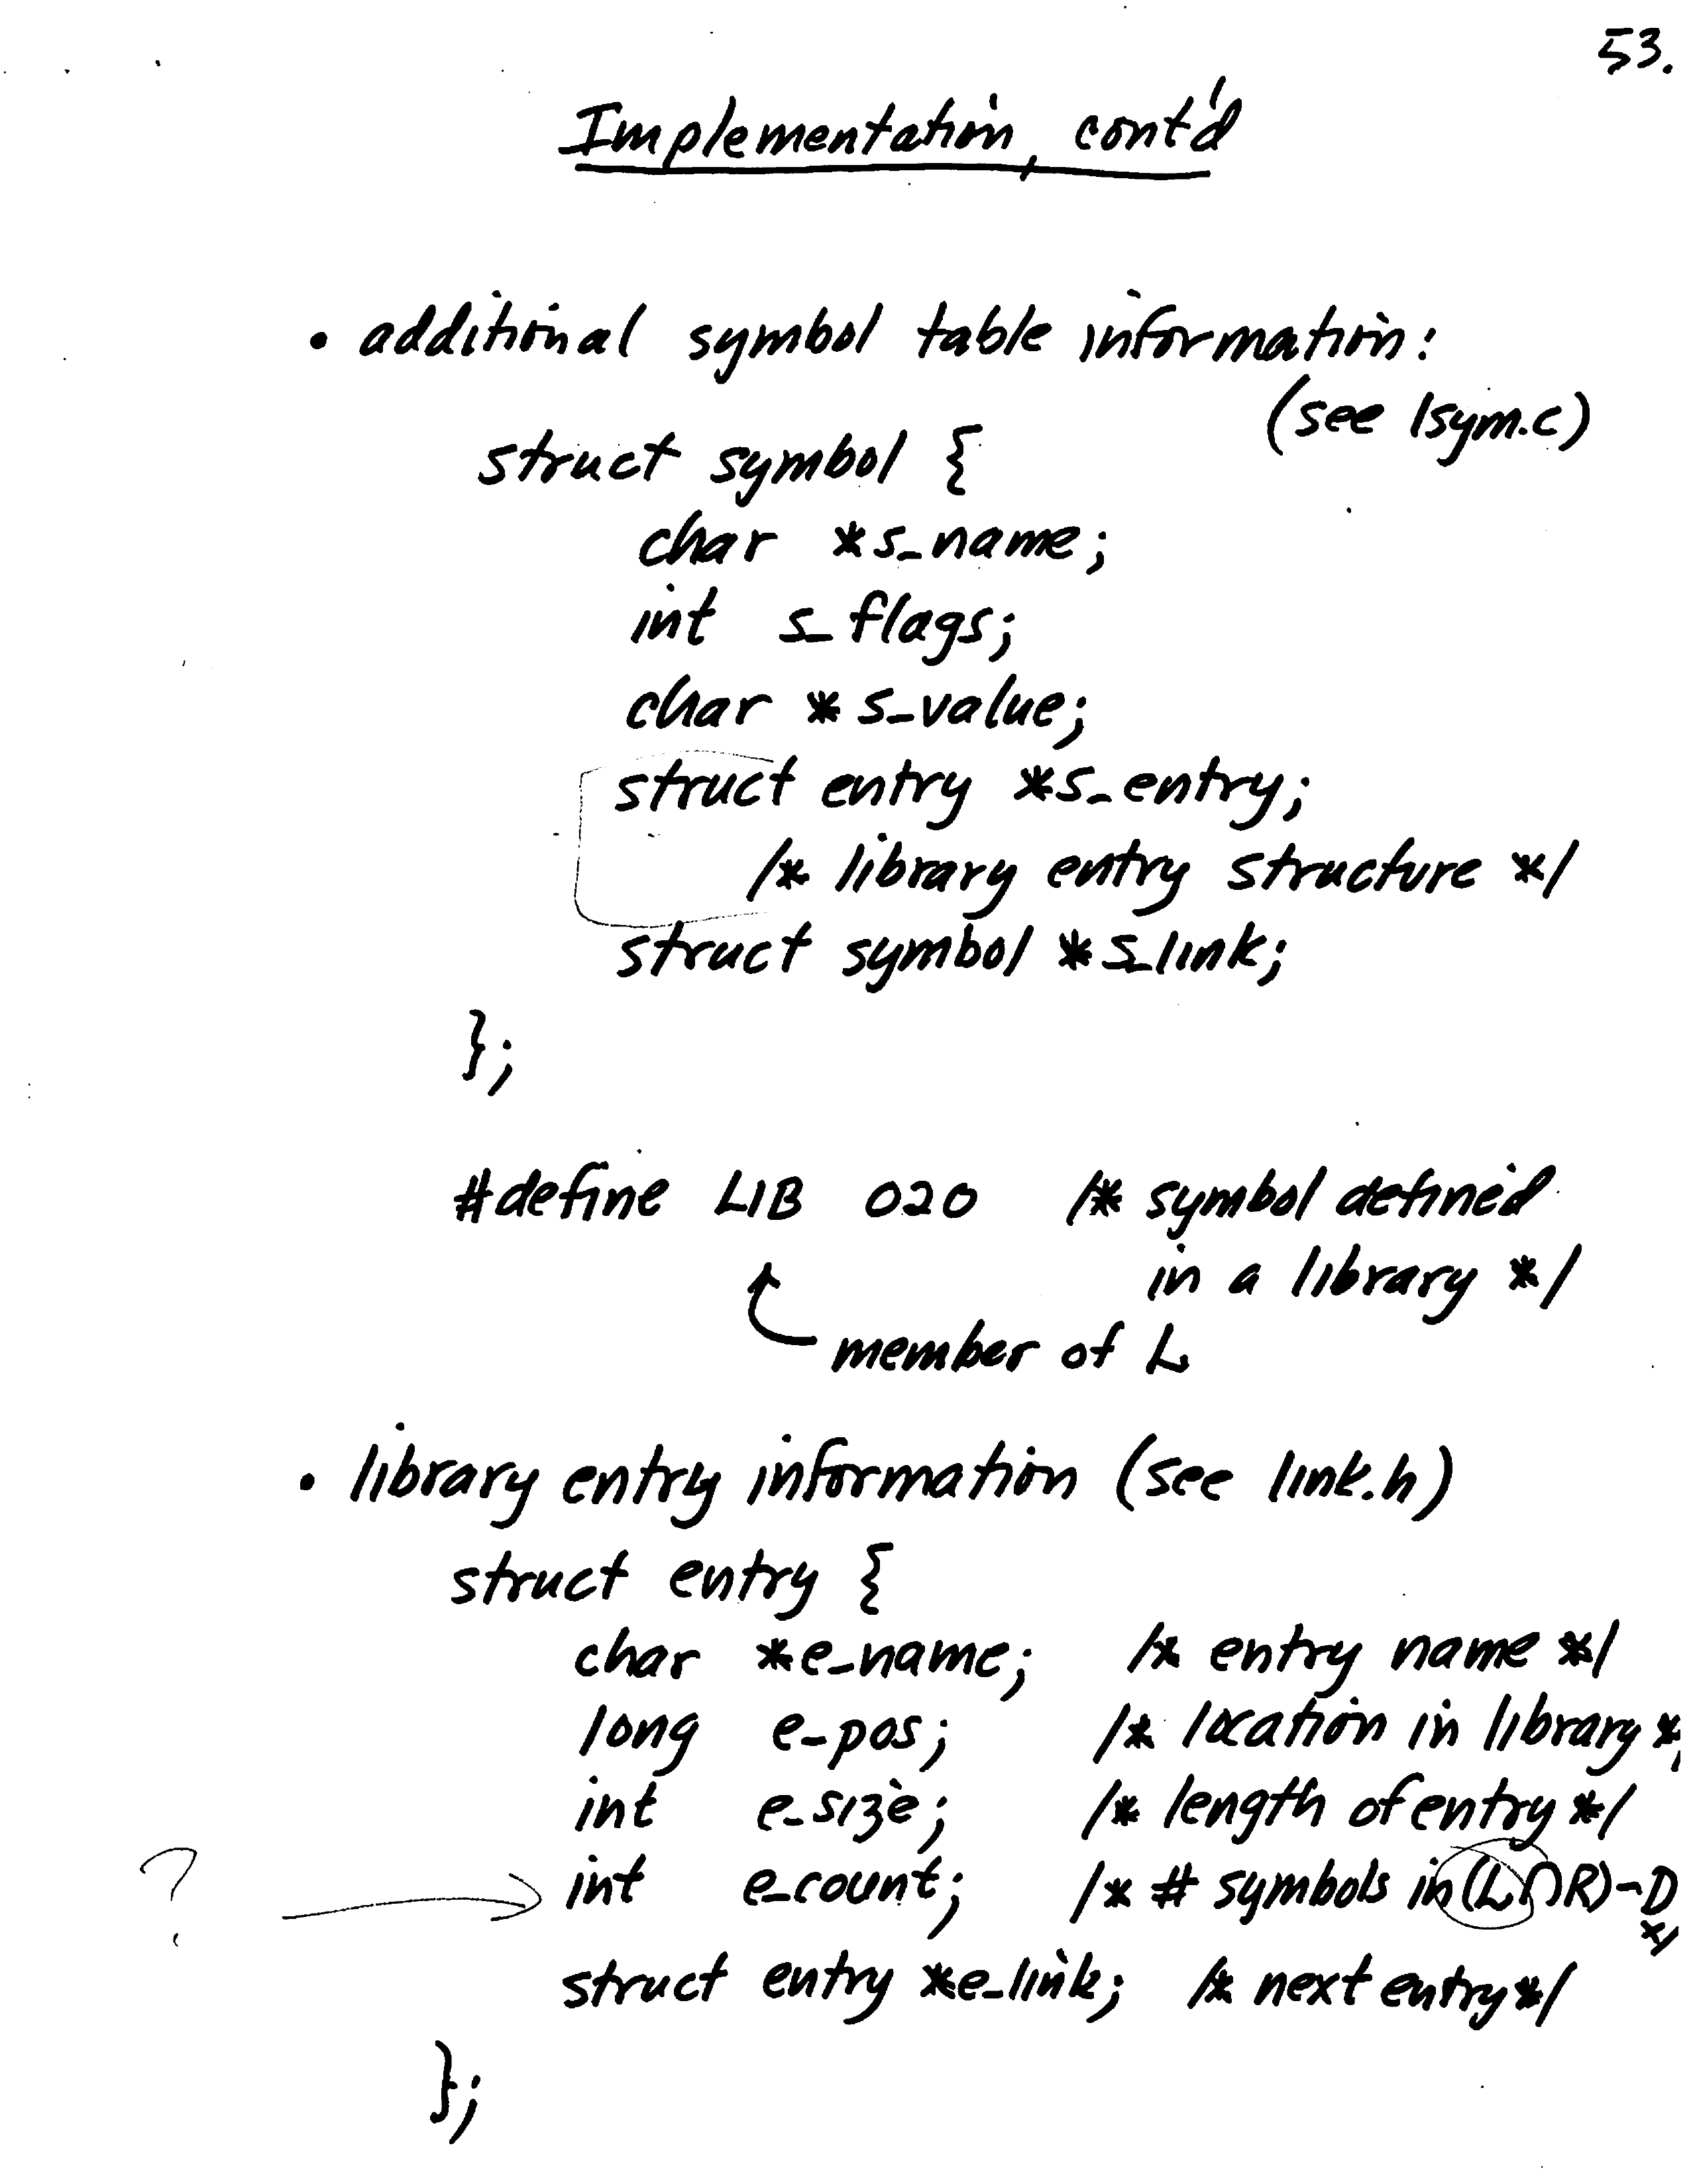 53.
Implementation, cont'd
• additional symbol table information:
(see lsym.c)
struct symbol {
char *s_name;
int s_flags;
char *s_value;
struct entry *s_entry;
/* library entry structure */
struct symbol *s_link;
};
#define LIB 020 /* symbol defined
in a library */
member of L
• library entry information (see link.h)
struct entry {
char *e_name; /* entry name */
long e_pos; /* location in library */
int e_size; /* length of entry */
? int e_count; /* # symbols in (L∩R)-D
*/
struct entry *e_link; /* next entry */
};